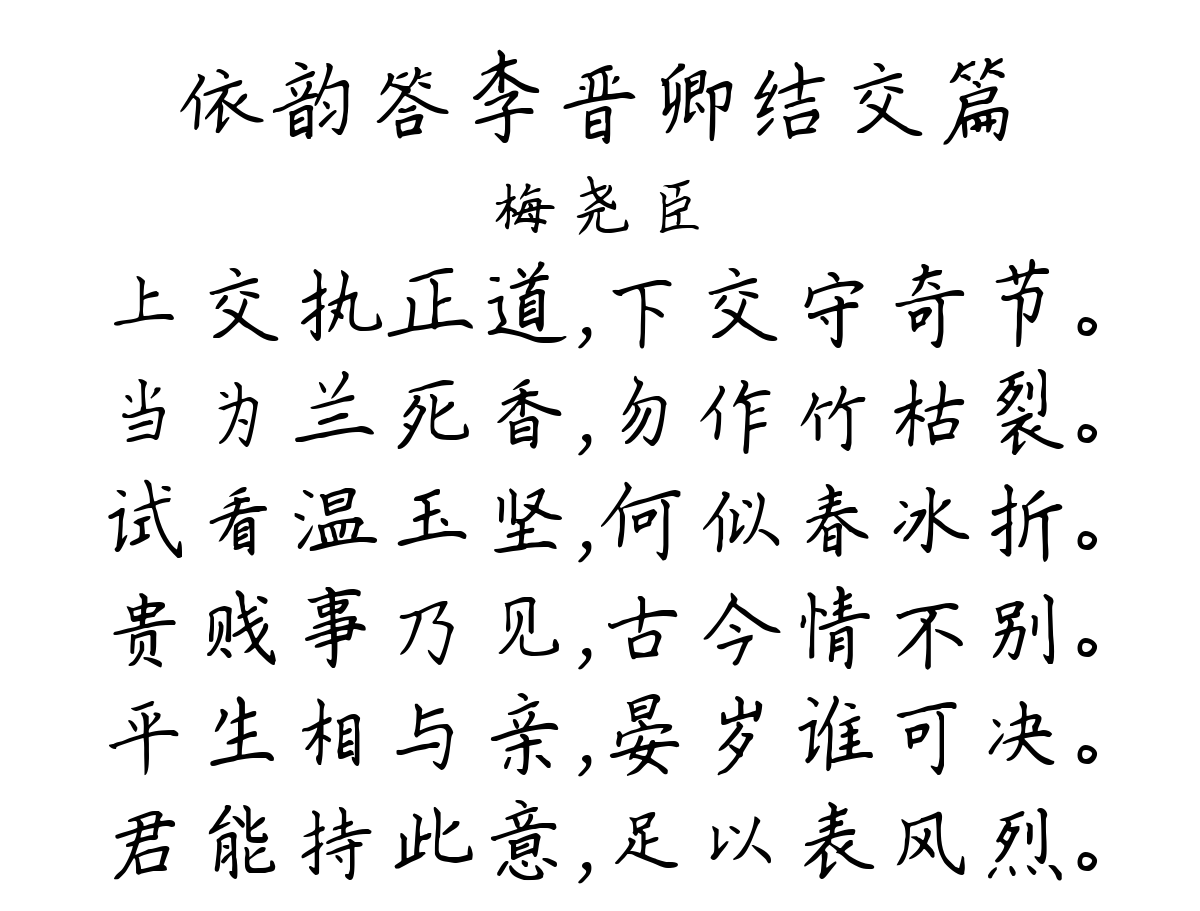 依韵答李晋卿结交篇
梅尧臣
上交执正道,下交守奇节。
当为兰死香,勿作竹枯裂。
试看温玉坚,何似春冰折。
贵贱事乃见,古今情不别。
平生相与亲,晏岁谁可决。
君能持此意,足以表风烈。